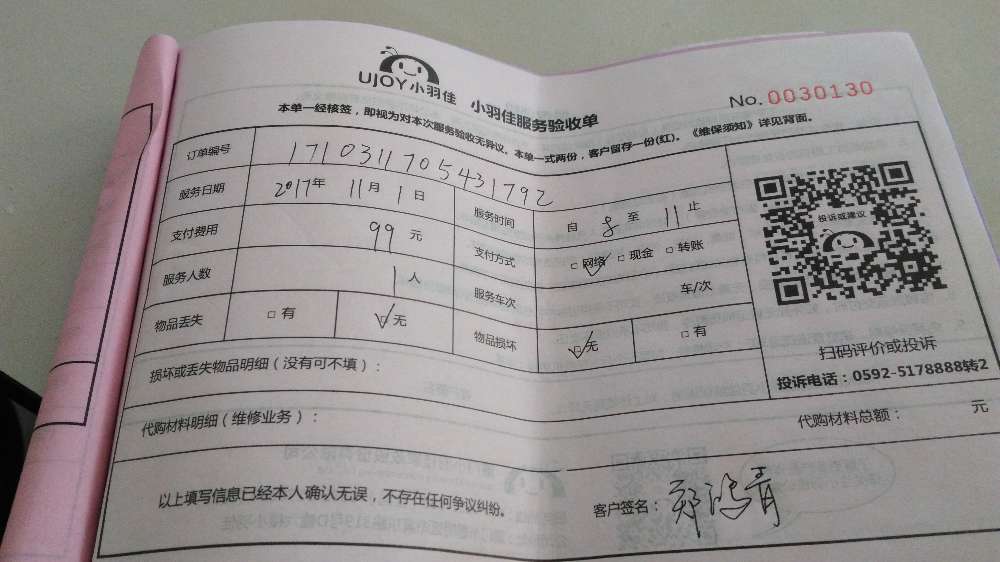 UJOY小羽佳 小羽佳服务验收单
No. 0030130
本单一经核签，即视为对本次服务验收无异议。本单一式两份，客户留存一份(红)。《维保须知》详见背面。
订单编号 171031170543​1792
服务日期 2017年 11月 1日 服务时间 自 8 至 11 止
支付费用 99 元 支付方式 □网络 □现金 □转账
服务人数 1人 服务车次 车/次
物品丢失 □有 □无 物品损坏 □无 □有
投诉或建议
扫码评价或投诉
投诉电话：0592-5178888转2
损坏或丢失物品明细（没有可不填）：
代购材料明细（维修业务）： 代购材料总额： 元
以上填写信息已经本人确认无误，不存在任何争议纠纷。 客户签名：郑鸿青